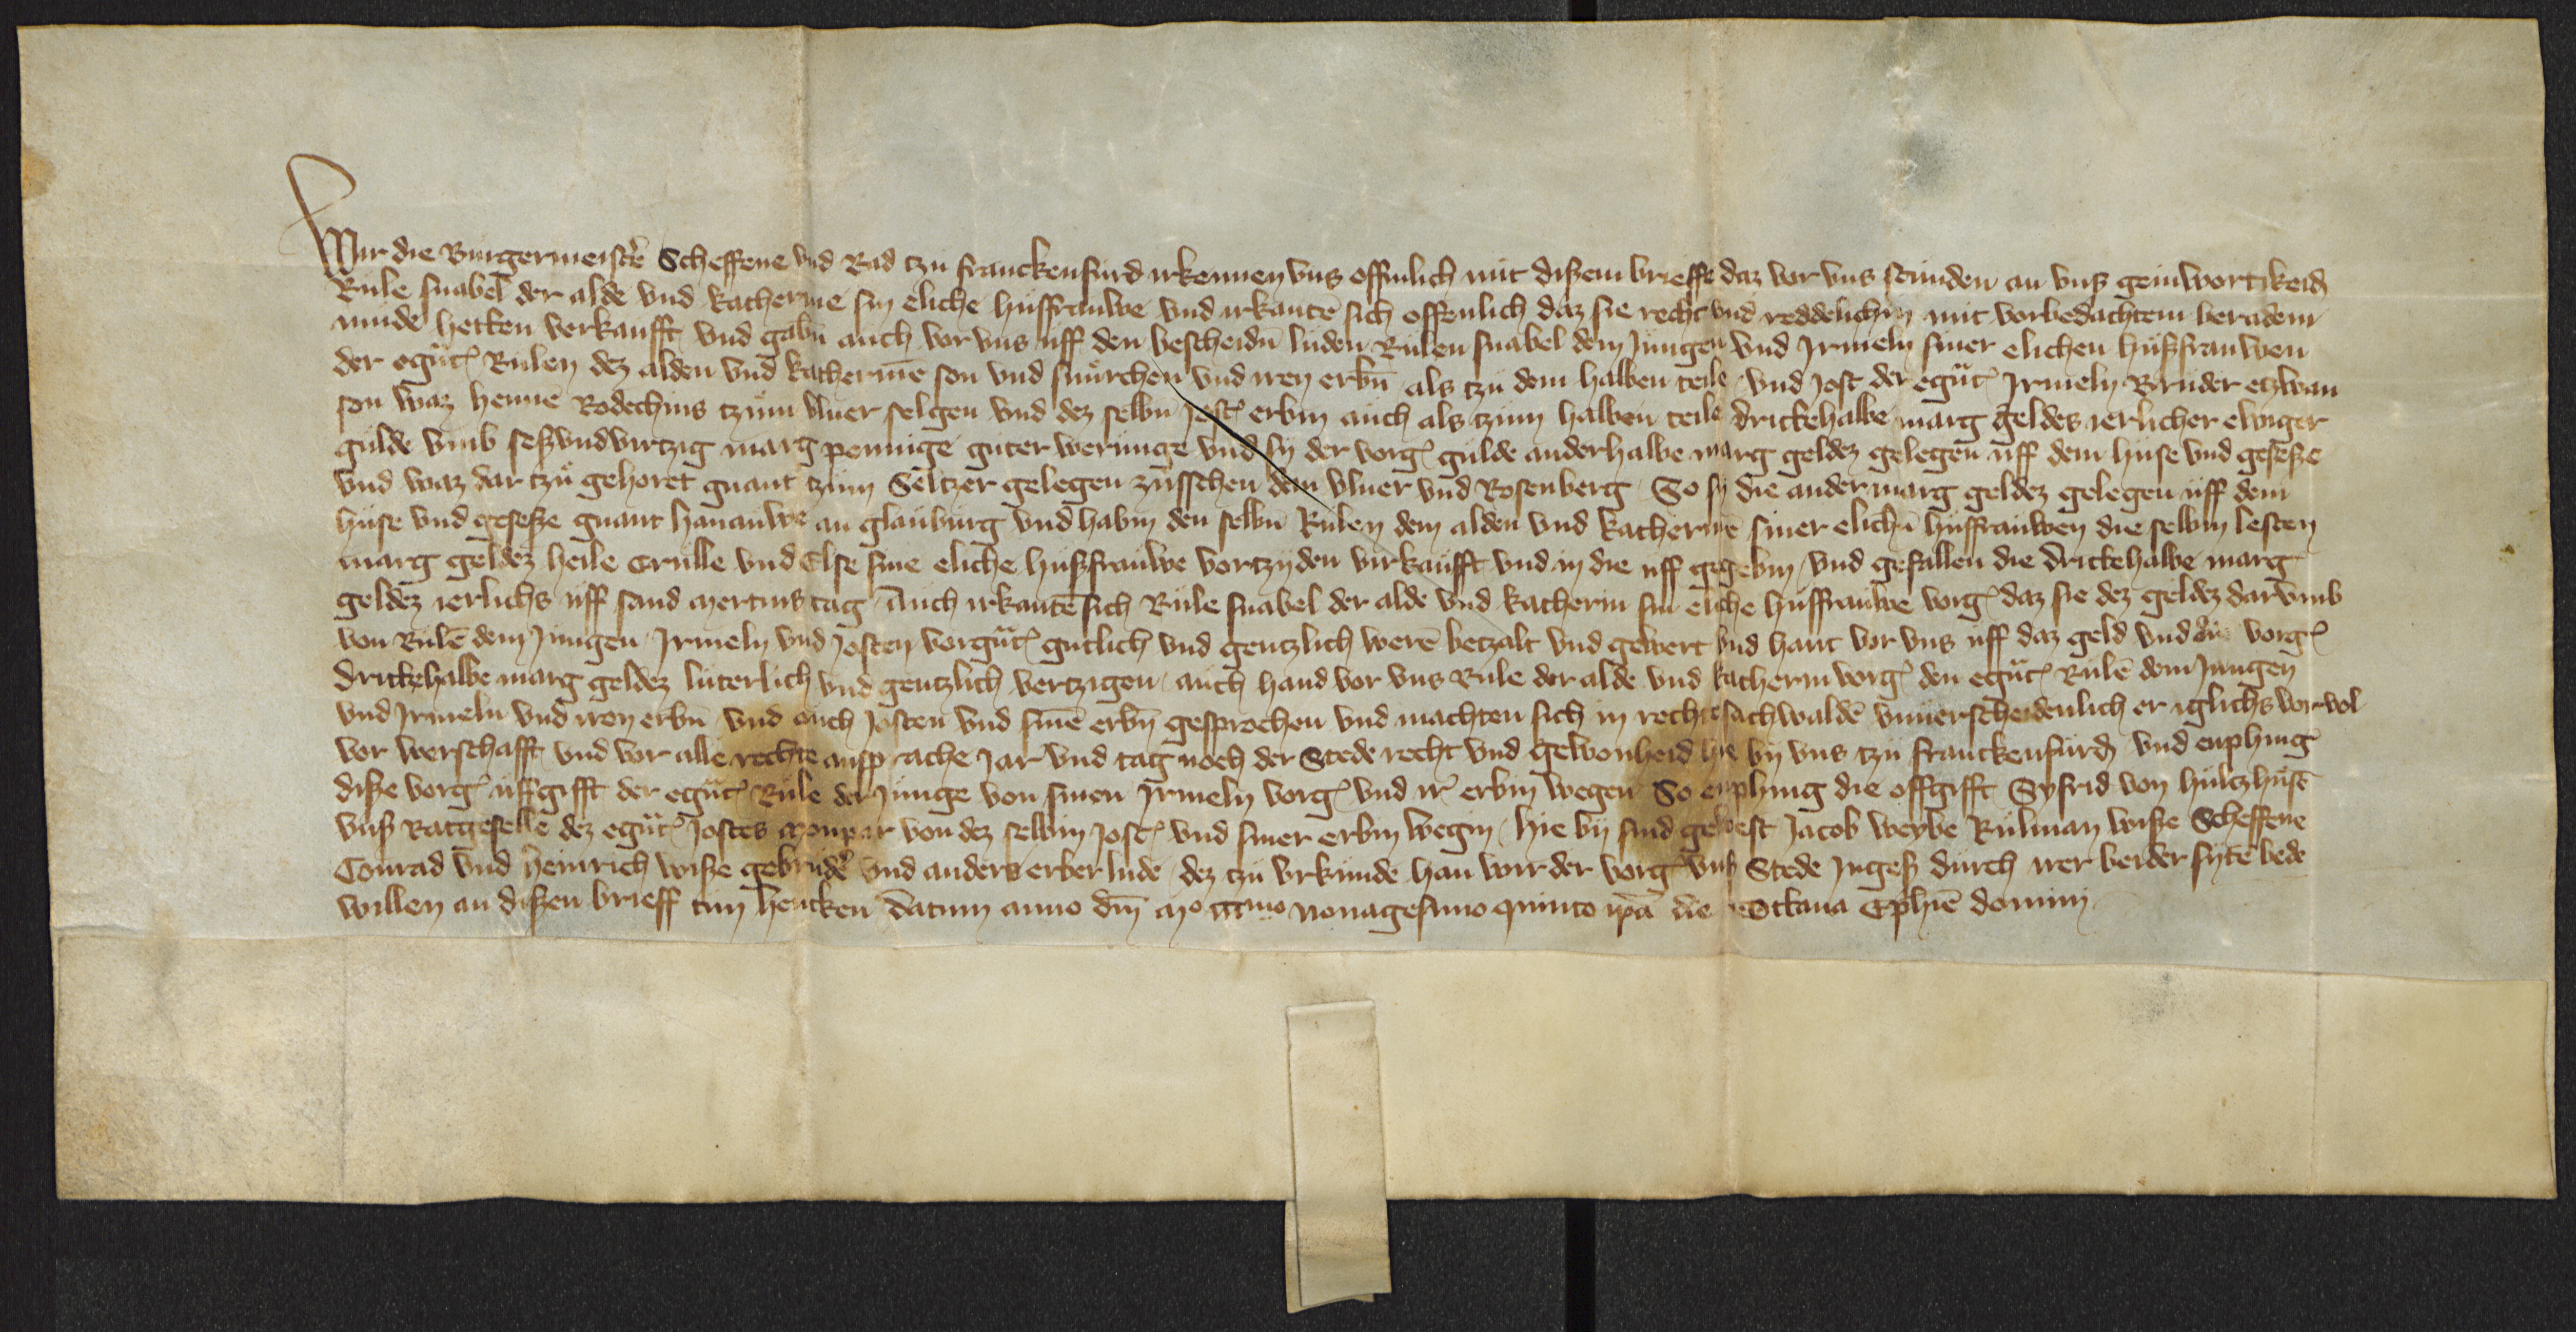 Wir die Burgermeistere Scheffene vnd Rad tzu franckenfurd irkennen vns offinlich mit dißem brieffe daz vor vns stunden an vnß geinwortikeid
Rule snabel der alde vnd katherine sin eliche husfrauwe vnd irkante sich offenlich daz sie recht vnd reddelichin mit vorbedachtem beradem
mude hetten verkaufft vnd gabin auch vor vns uff den bescheidn luden Rulen snabel dem Jungen vnd Irmeln siner elichen hußfrauwen
der egnt Rulen dez alden vnd katherine son vnd snurchen vnd iren erbn als tzu dem halben teile vnd Jost der egnt Irmeln Bruder etzwan
son waz henne Rodechins tzum vlner selgen vnd dez selbn Jost erbin auch als tzum halben teile drittehalbe marg geldes ierlicher ewiger
gulde vmb seßvndvirtzig marg pennige guter werunge vnd sy der vorg gulde anderhalbe marg geldez gelegen uff dem huse vnd geseße
vnd waz dar tzu gehoret gnant tzum Seltzer gelegen zusschen dem vlner vnd Rosenberg So sy die ander marg geldez gelegen uff dem
huse vnd geseße gnant hanauwe an glauburg vnd habin den selbn Rulen dem alden vnd katherine siner elichn husfrauwen die selbin lesten
marg geldez heile Crulle vnd Else sine eliche hußfrauwe vortzyden virkaufft vnd in die uff gegebin vnd gefallen die drittehalbe marg
geldez ierlichs uff sand mertins tag Auch irkante sich Rule snabel der alde vnd katherin sin eliche husfrauwe vorg daz sie dez geldez darvmb
von Rule dem Jungen Irmeln vnd Josten vorgnt gutlich vnd gentzlich were betzalt vnd gewert vnd hant vor vns uff daz geld vnd die vorg
drittehalbe marg geldez luterlich vnd gentzlich vertzigen auch hand vor vns Rule der alde vnd katherin vorg den egnt Rule dem Jungen
vnd Irmeln vnd iren erbn vnd auch Josten vnd sine erbn gesprochen vnd machten sich in rechte sachwalde vnuerscheidenlich er iglichs vor vol
vor werschafft vnd vor alle rechte ansprache Jar vnd tag noch der Stede recht vnd gewonheid hie by vns tzu franckenfurd vnd enphing
diße vorg uffgifft der egnt Rule der Junge von sinen Irmeln vorg vnd ir erbin wegen So enphing die offgifft Syfrid von hultzhuse
vnß Ratgeselle dez egnt Jostes monpar von dez selbin Jost vnd siner erbin wegin hie by sind gewest Jacob weybe Rulman wiße Scheffene
Conrad vnd heinrich wiße gebrudere vnd anders erber lude dez tzu vrkunde han wir der vorg vnß Stede Ingeß durch irer beider syte bede
willen an dißen brieff tun hencken Datum anno dm mo ccco nonagesimo quinto ipa die Octaua Ephie domini